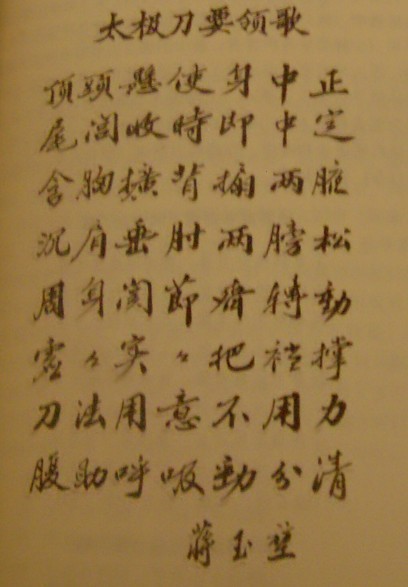 太极刀要领歌
頂頭懸使身中正
尾闾收時即中定
含胸擴背两腋
沉肩垂肘两膀松
周身関節齊轉動
虚々实々把裆撑
刀法用意不用力
腹助呼吸劲分清
蒋玉堃